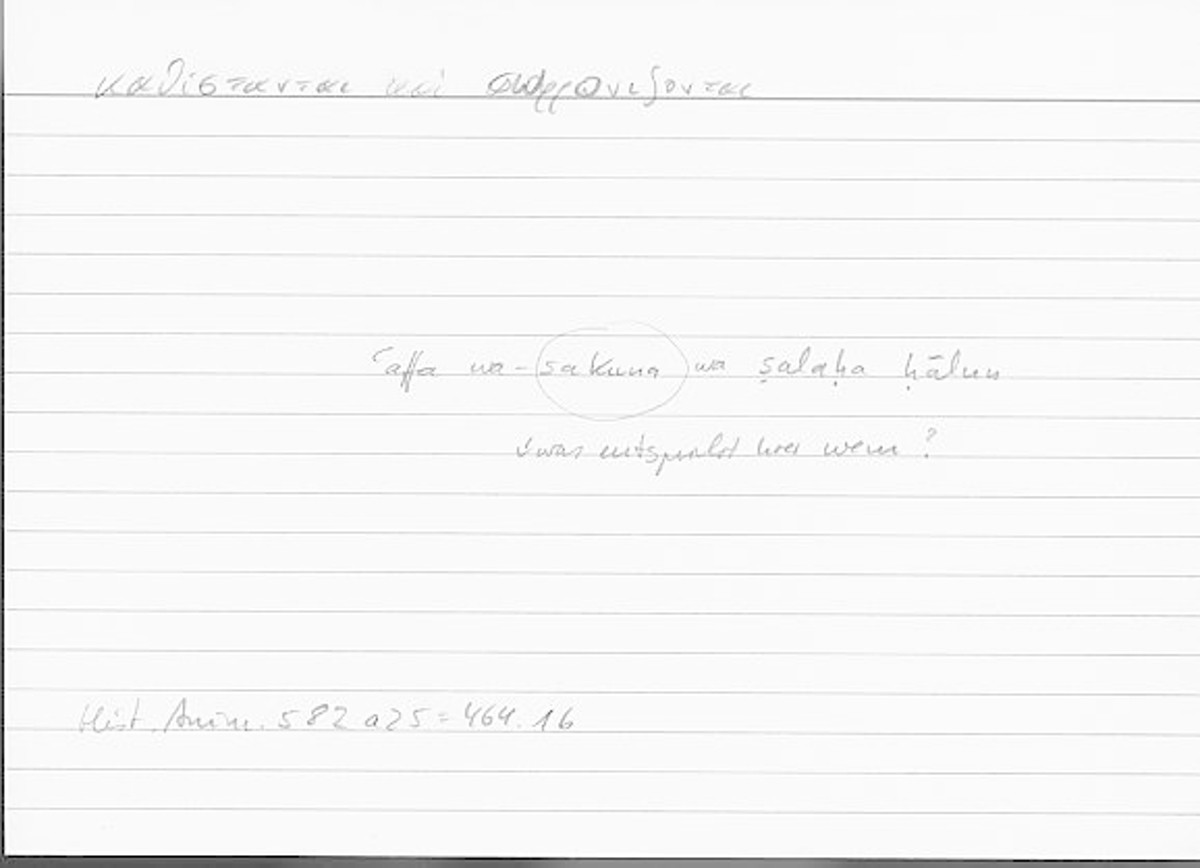 καθίστανται καὶ σωφρονίζονται
ʿaffa wa-sakuna wa ṣalaḥa ḥālun
was entspricht hier wem?
Hist. Anim. 582 a25 = 464.16